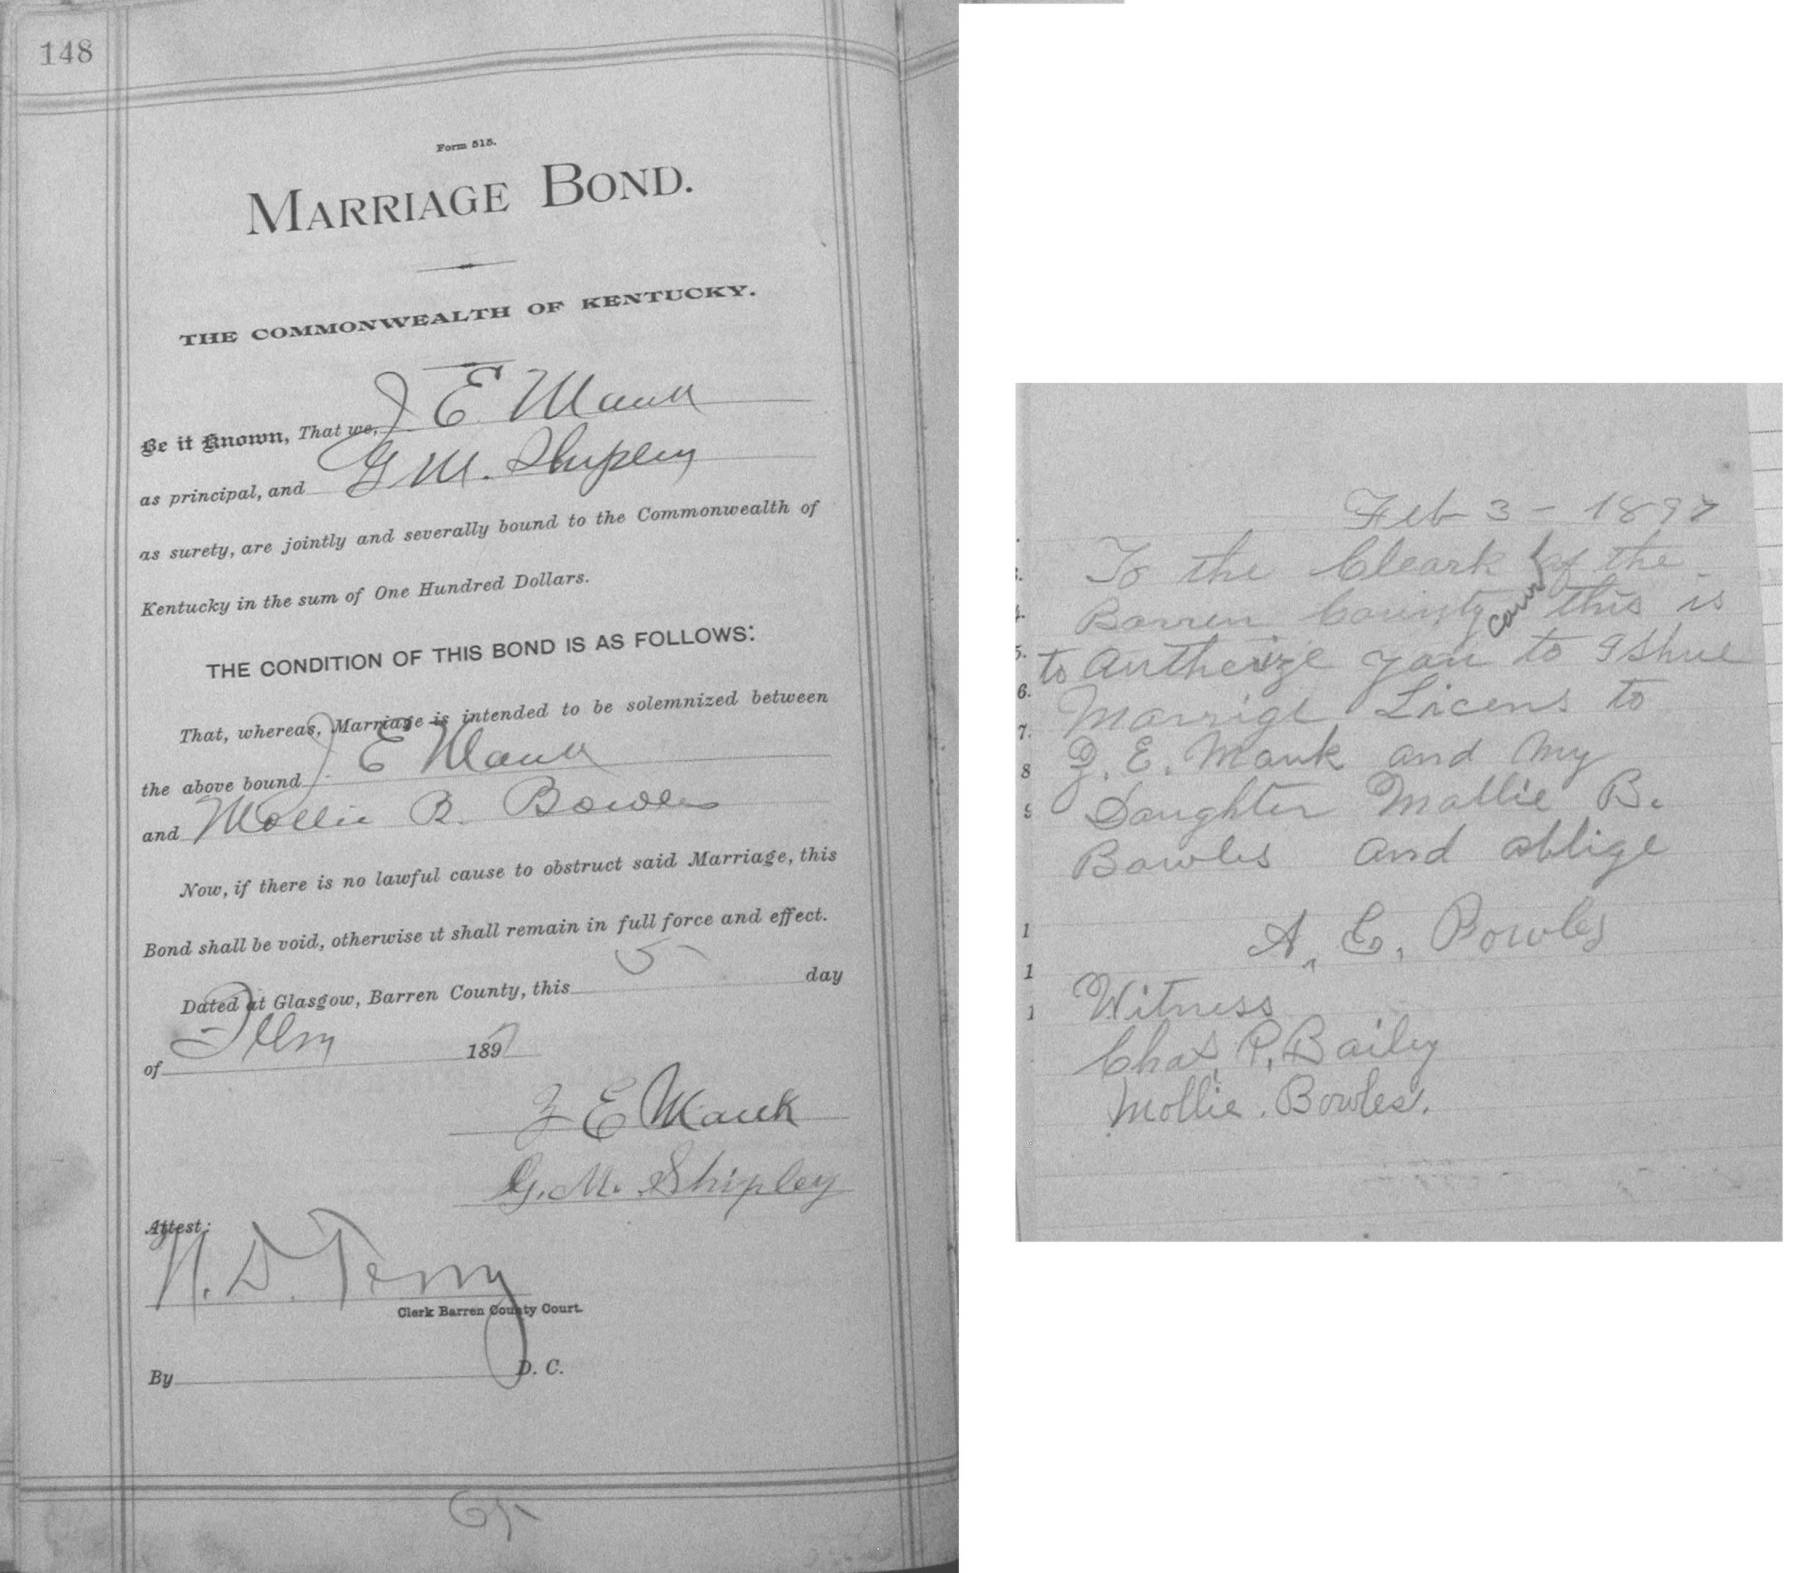 148
Form 515.
MARRIAGE BOND.
THE COMMONWEALTH OF KENTUCKY.
Be it Known, That we, J E Mauk
as principal, and G M. Shipley
as surety, are jointly and severally bound to the Commonwealth of
Kentucky in the sum of One Hundred Dollars.
THE CONDITION OF THIS BOND IS AS FOLLOWS:
That, whereas, Marriage is intended to be solemnized between
the above bound J E Mauk
and Mollie B. Bowles
Now, if there is no lawful cause to obstruct said Marriage, this
Bond shall be void, otherwise it shall remain in full force and effect.
Dated at Glasgow, Barren County, this 5 day
of Febry 1897
J E Mauk
G. M. Shipley
Attest:
W. D. Terry
Clerk Barren County Court.
By D. C.
Feb 3 - 1897
To the Cleark of the
Barren County court this is
to Autherize you to Ishue
Marrige Licens to
J. E. Mauk and My
Daughter Mollie B.
Bowles and oblige
A. C. Bowles
Witness
Chas. P. Baily
Mollie. Bowles.
5.
6.
7.
8
9
1
1
1